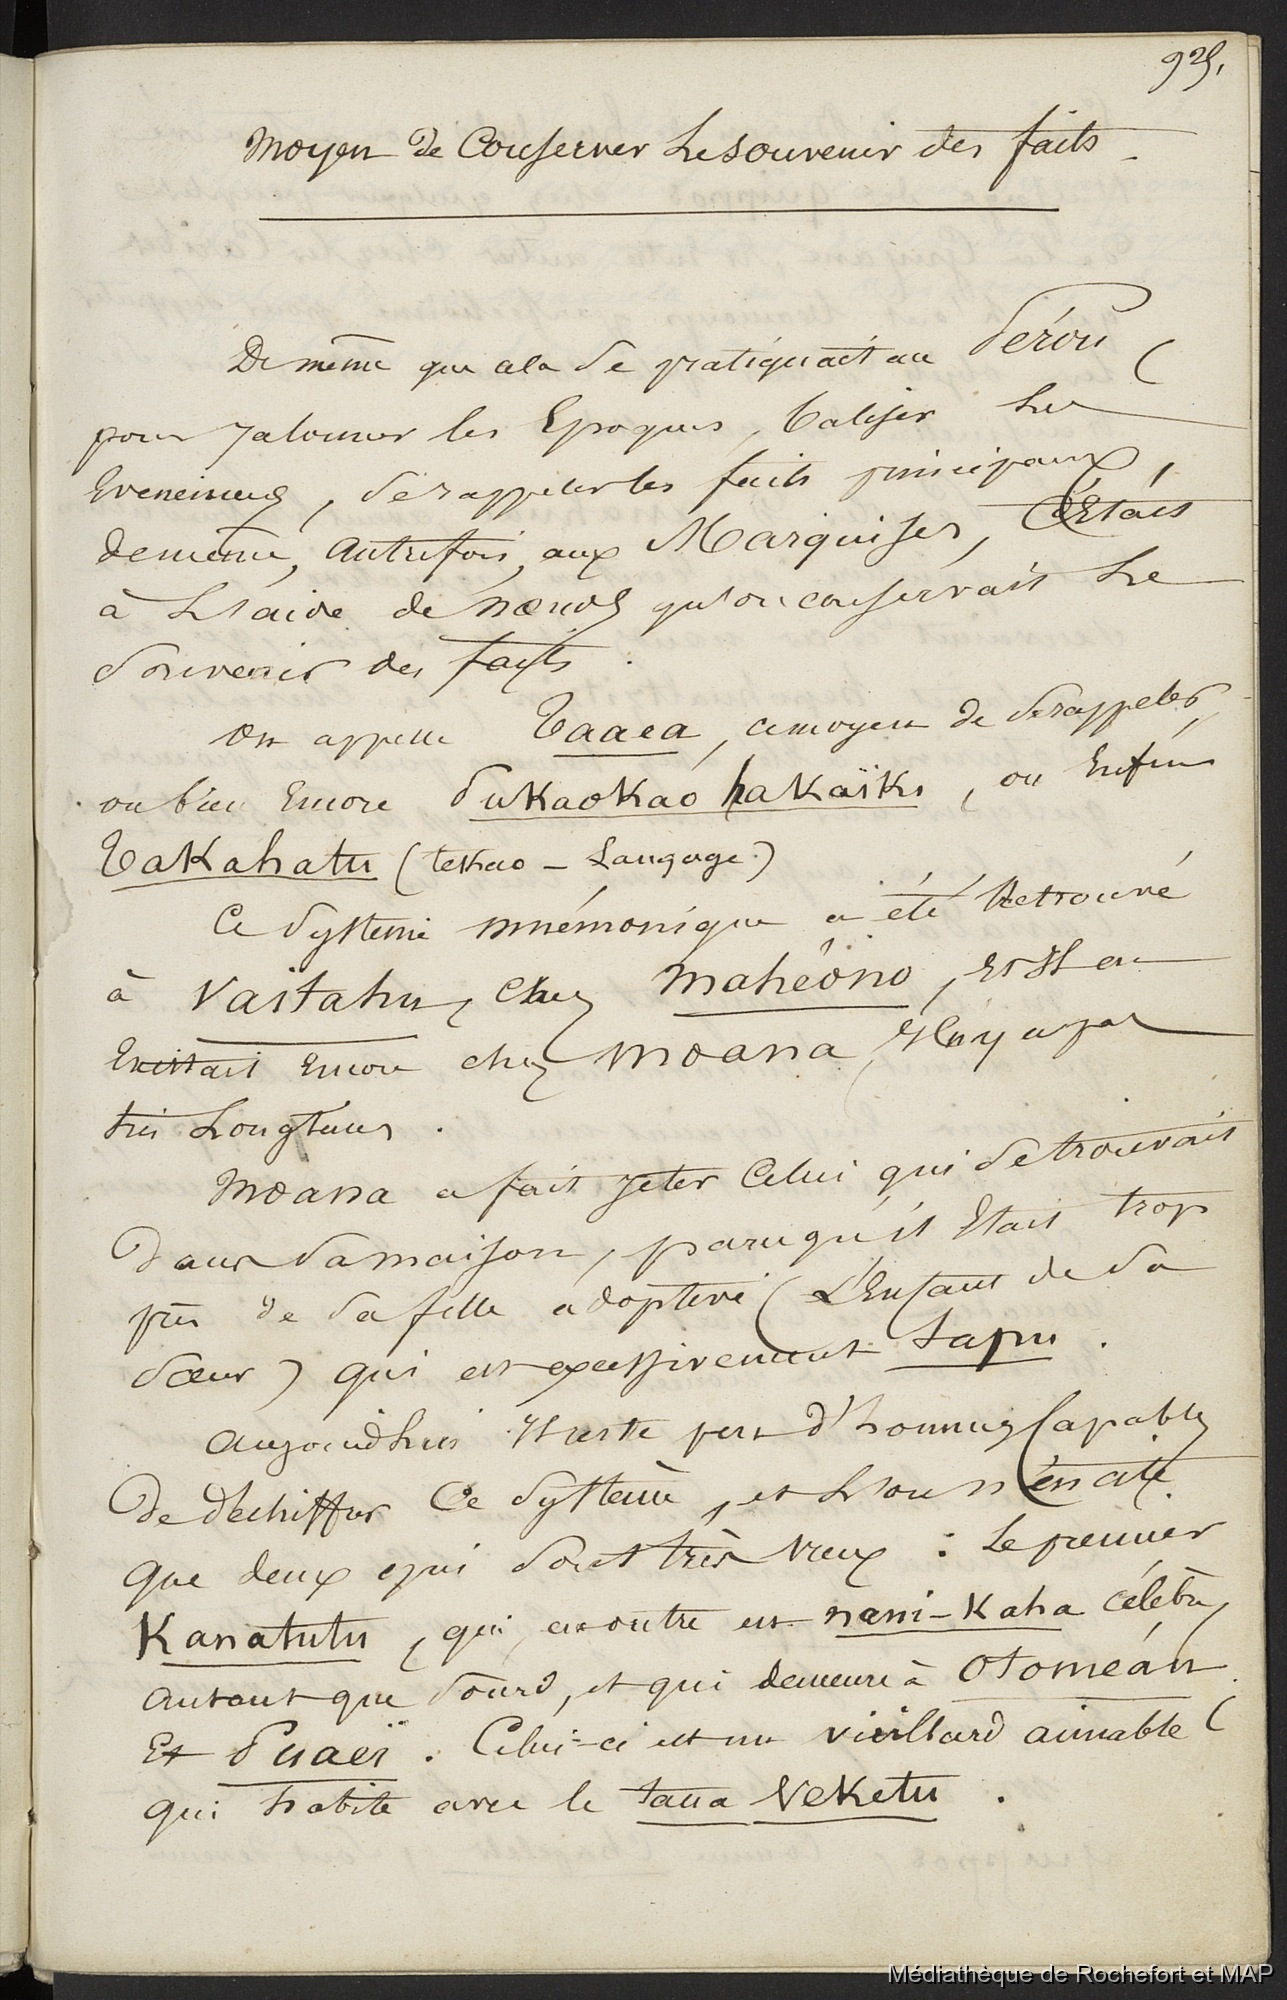 925,
Moyen de Conserver Le souvenir des faits.
De même que cela Se pratiquait au Pérou
pour Jalonner les Epoques, baliser Les
Evenements, Se rappeler les faits principaux,
de même, Autrefois, aux Marquises, C'Etait
à L'aide de nœuds qu'on conservait Le
Souvenir des faits.
On appelle Taaea, ce moyen de Se rappeler,
ou bien Encore Pukaokao hakaïki, ou Enfin
Takahatu (tekao – Langage.)
Ce Systeme mnémonique a été Retrouvé
à Vaïtahu, chez Mahéono, Et Il en
Existait Encore chez Moana, Il n'y a pas
très Longtems.
Moana a fait Jeter Celui qui Se trouvait
Dans Sa maison, parcequ'il Etait trop
près de Sa fille adoptive (L'Enfant de Sa
Sœur) qui est excessivement tapu.
Aujourd'hui Il reste peu d'hommes Capables
De déchiffrer Ce Système, et L'on n'en cite
que deux qui Sont très Vieux : Le premier
Kanatutu, qui, en outre est nani-Kaha célèbre,
autant que Sourd, et qui demeure à
Et Puaeï. Celui-ci est un vieillard aimable
qui habite avec le taua Veketu.
Médiathèque de Rochefort et MAP